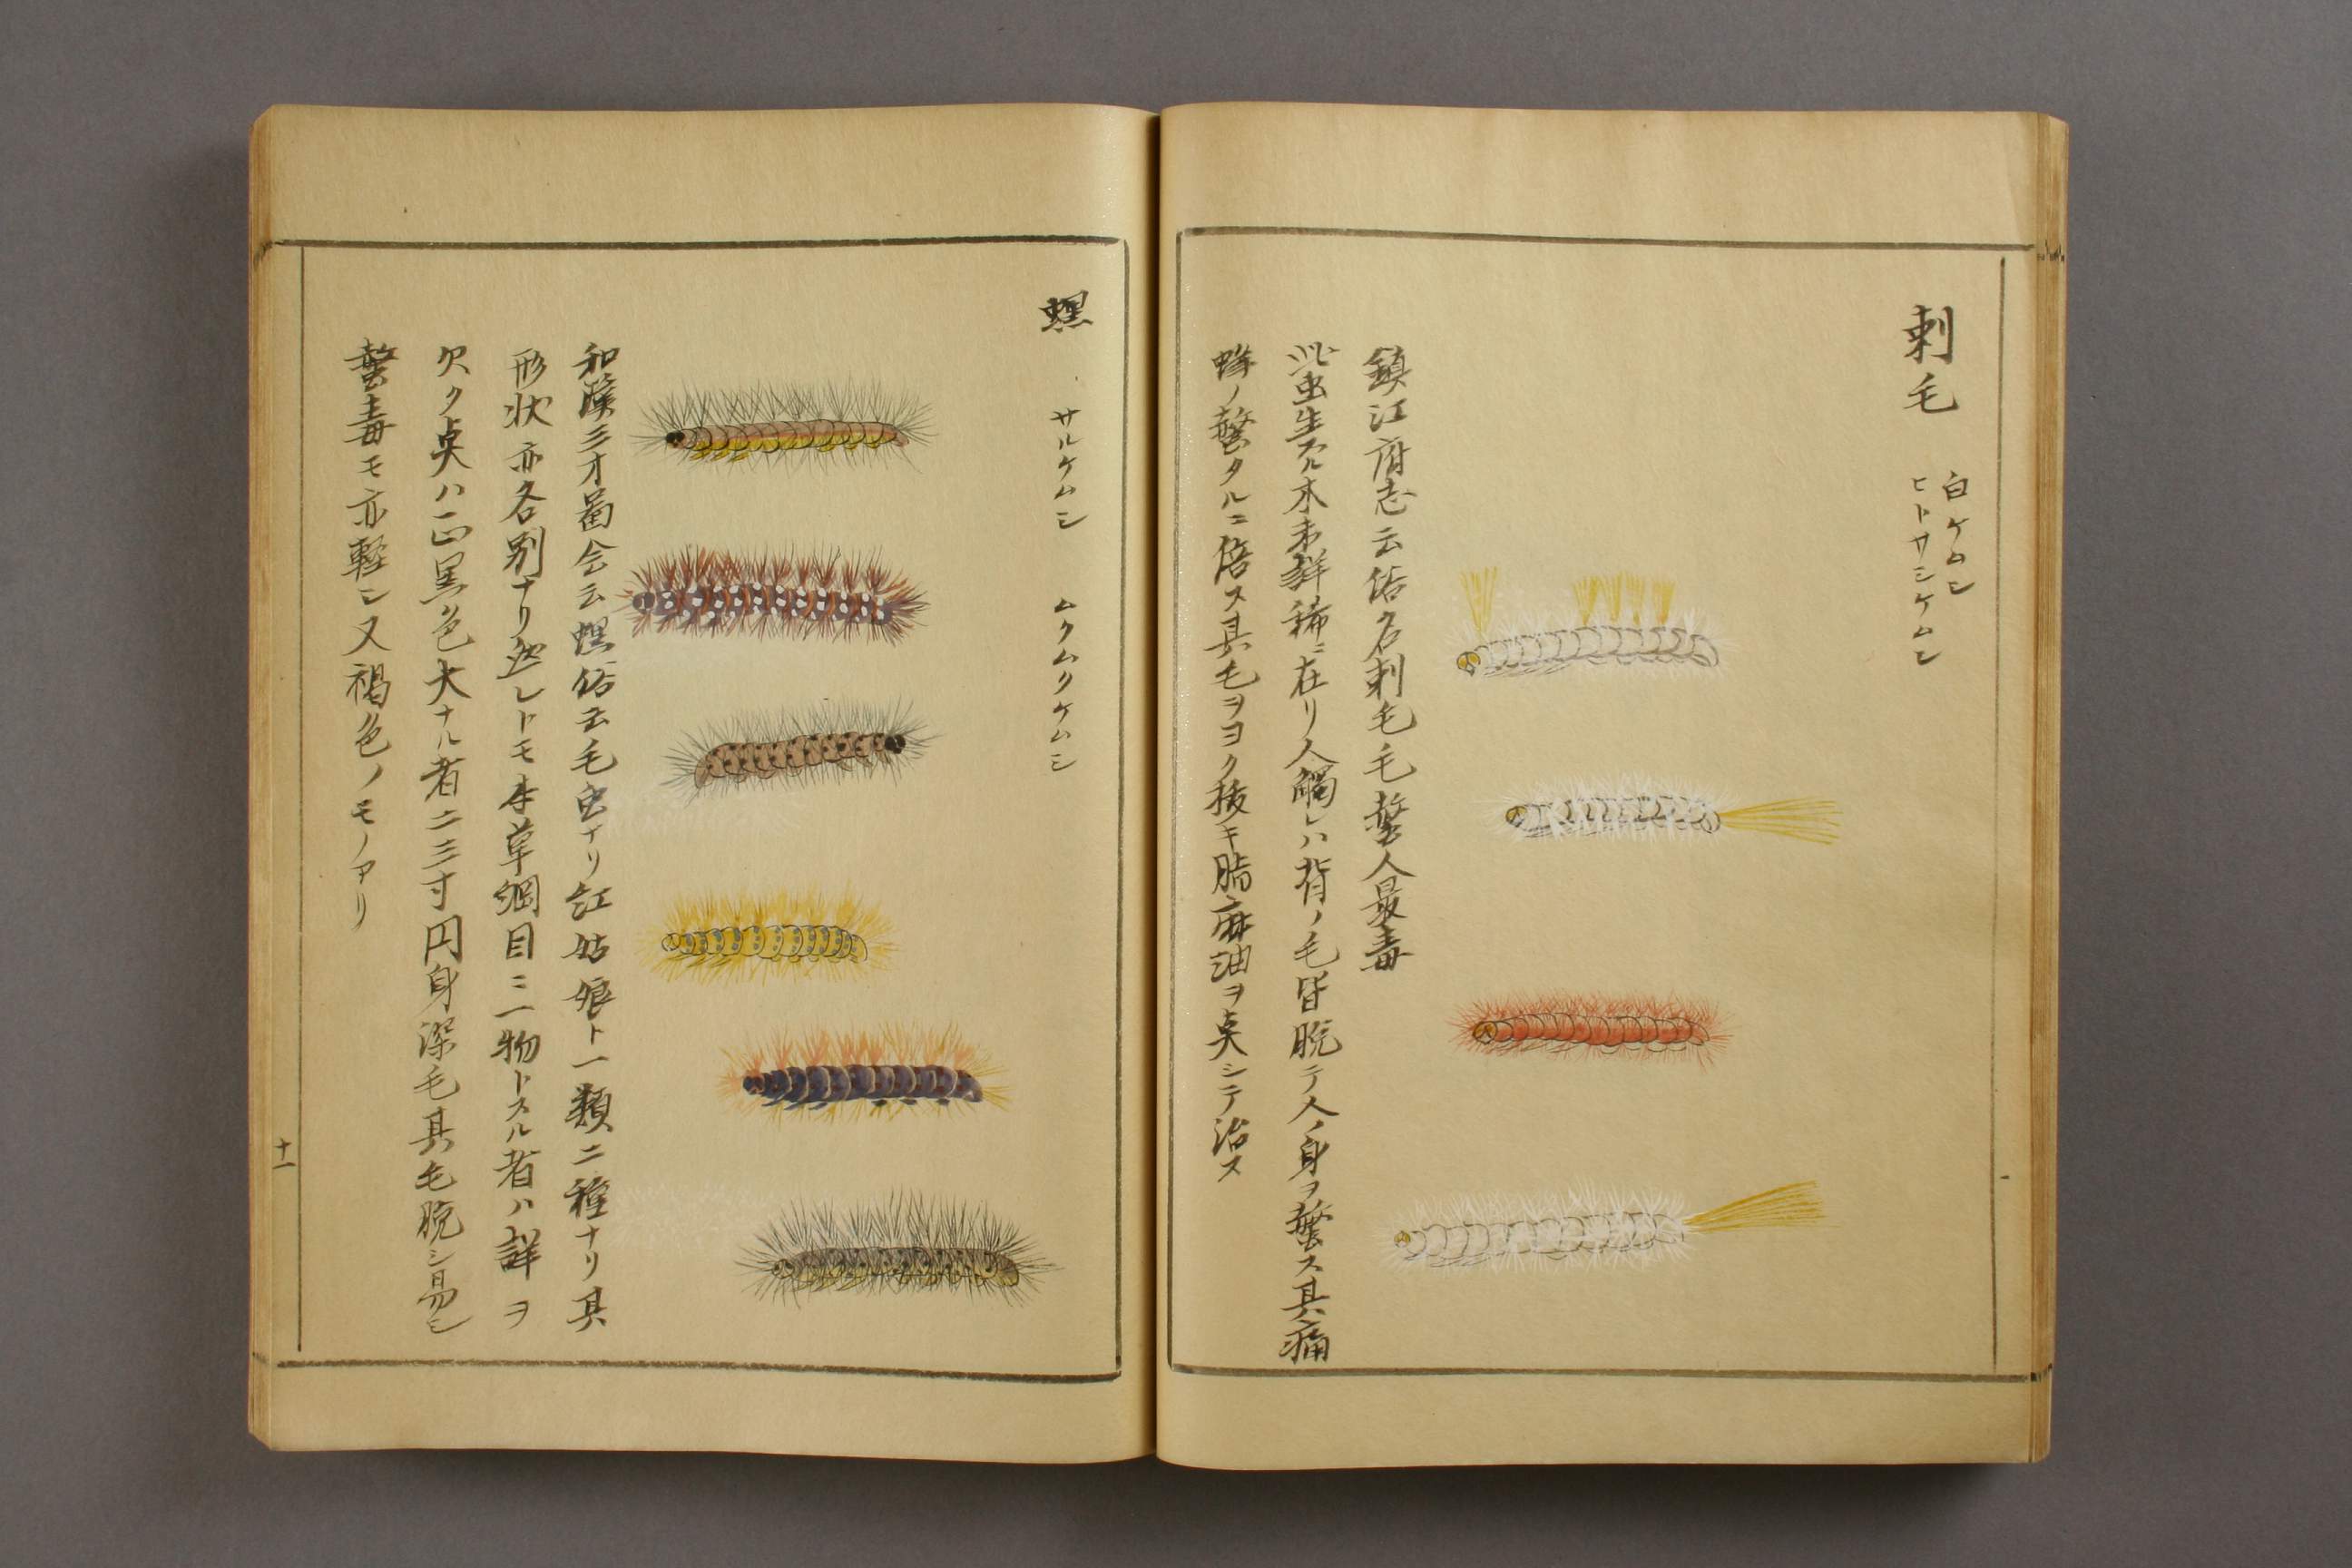 刺毛
白ケムシ
ヒトサシケムシ
鎮江府志云俗名刺毛毛螫人最毒
此虫生スル木未詳稀ニ在リ人觸レハ背ノ毛皆脱テ人ノ身ヲ螫ス其痛
蜂ノ螫タルニ倍ス其毛ヲヨク抜キ脂麻油ヲ点シテ治ス
サルケムシ ムクムクケムシ
和漢三才啚会云 俗云毛虫ナリ紅姑娘ト一類二種ナリ其
形状亦各別ナリ然レトモ本草綱目ニ一物トスル者ハ詳ヲ
欠ク 点ハ正黒色大ナル者二三寸円身深毛其毛脱シ易シ
螫毒モ亦軽シ又褐色ノモノアリ
十一